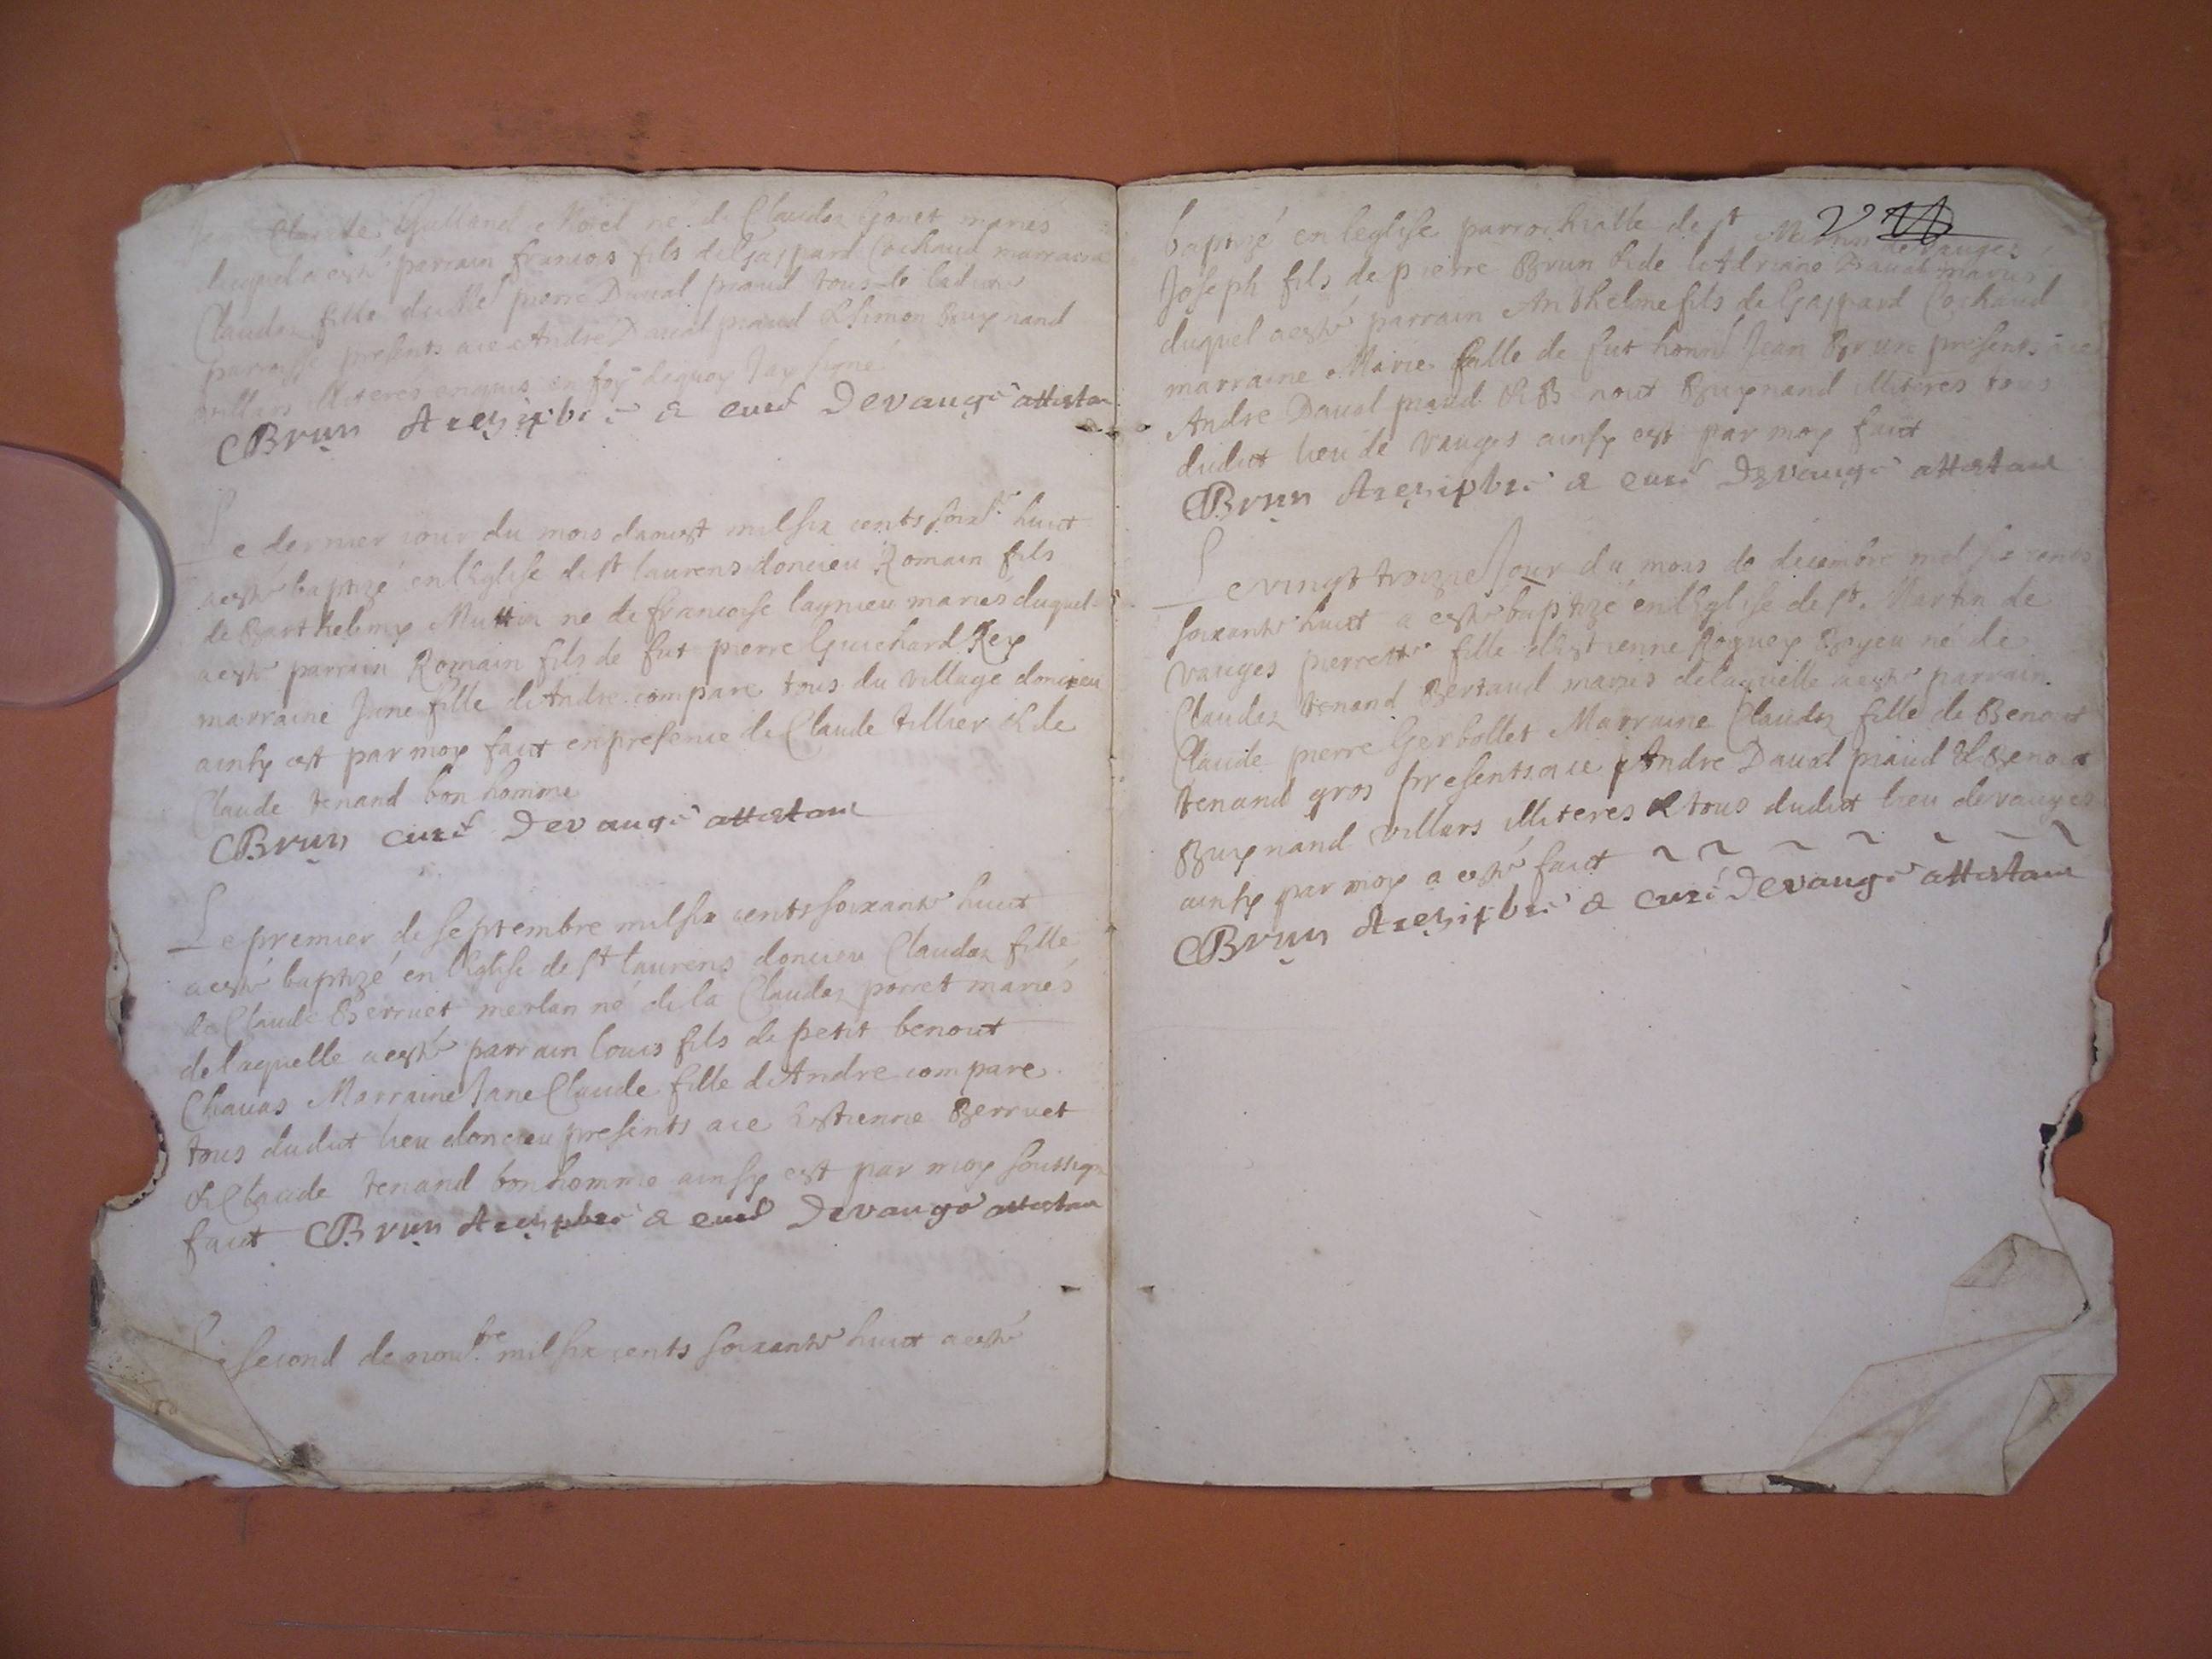 Claude Gulland Morel né de Claudaz Govet mariés
duquel a esté parrain francois fils de Gaspard Cochaud marraine
Claudaz fille de pierre Daual piaud tous de ladite
parroisse presents aue Andre Daual piaud & Simon Buynand
villars illiteres enquis en foy dequoy Jay signé
Brun Archipbre & curé Devauge attestant
Le dernier iour du mois daoust mil six cents soixte huict
a esté baptizé en lEglise de st laurens doncieu Romain fils
de Barthelemy Muttin né de francoise lagnieu mariés duquel
a esté parrain Romain fils de fut pierre Guichard Rey
marraine Jane fille de Andre compare tous du village doncieu
ainsy est par moy faict en presence de Claude tillier & de
Claude tenand bon homme
Brun curé Devauge attestant
Le premier de septembre mil six cents soixante huict
a esté baptizé en lEglise de st laurens doncieu Claudaz fille
de Claude Berruet merlan né de la Claudaz porret mariés
de laquelle a esté parrain louis fils de petit benoict
Chauas Marraine Jane Claude fille de Andre compare
tous dudict lieu doncieu presents aue Estienne Berruet
& Claude tenand bon homme ainsy est par moy soussigne
faict Brun Archipbre & curé Devauge attestant
Le second de nouebre mil six cents soixante huict a esté
baptizé en leglise parrochialle de st Martin de Vauges
Joseph fils de pierre Brun & de Adriane Daual mariés
duquel a esté parrain Anthelme fils de Gaspard Cochaud
marraine Marie fille de fut honné Jean Brun presents aue
Andre Daual piaud & Benoict Buynand illiteres tous
dudict lieu de Vauges ainsy est par moy faict
Brun Archipbre & curé Devauge attestant
Le vingt troizie Jour du mois de decembre mil six cents
soixante huict a esté baptizé en lEglise de st. Martin de
Vauges pierrette fille dEstienne Roguey Boyeu né de
Claudaz tenand Bertaud mariés de laquelle a esté parrain
Claude pierre Gerbollet Marraine Claudaz fille de Benoict
tenand gros presents aue Andre Daual piaud & Benoict
Buynand villars illiteres & tous dudict lieu de vauges
ainsy par moy a esté faict
Brun Archipbre & curé Devauge attestant